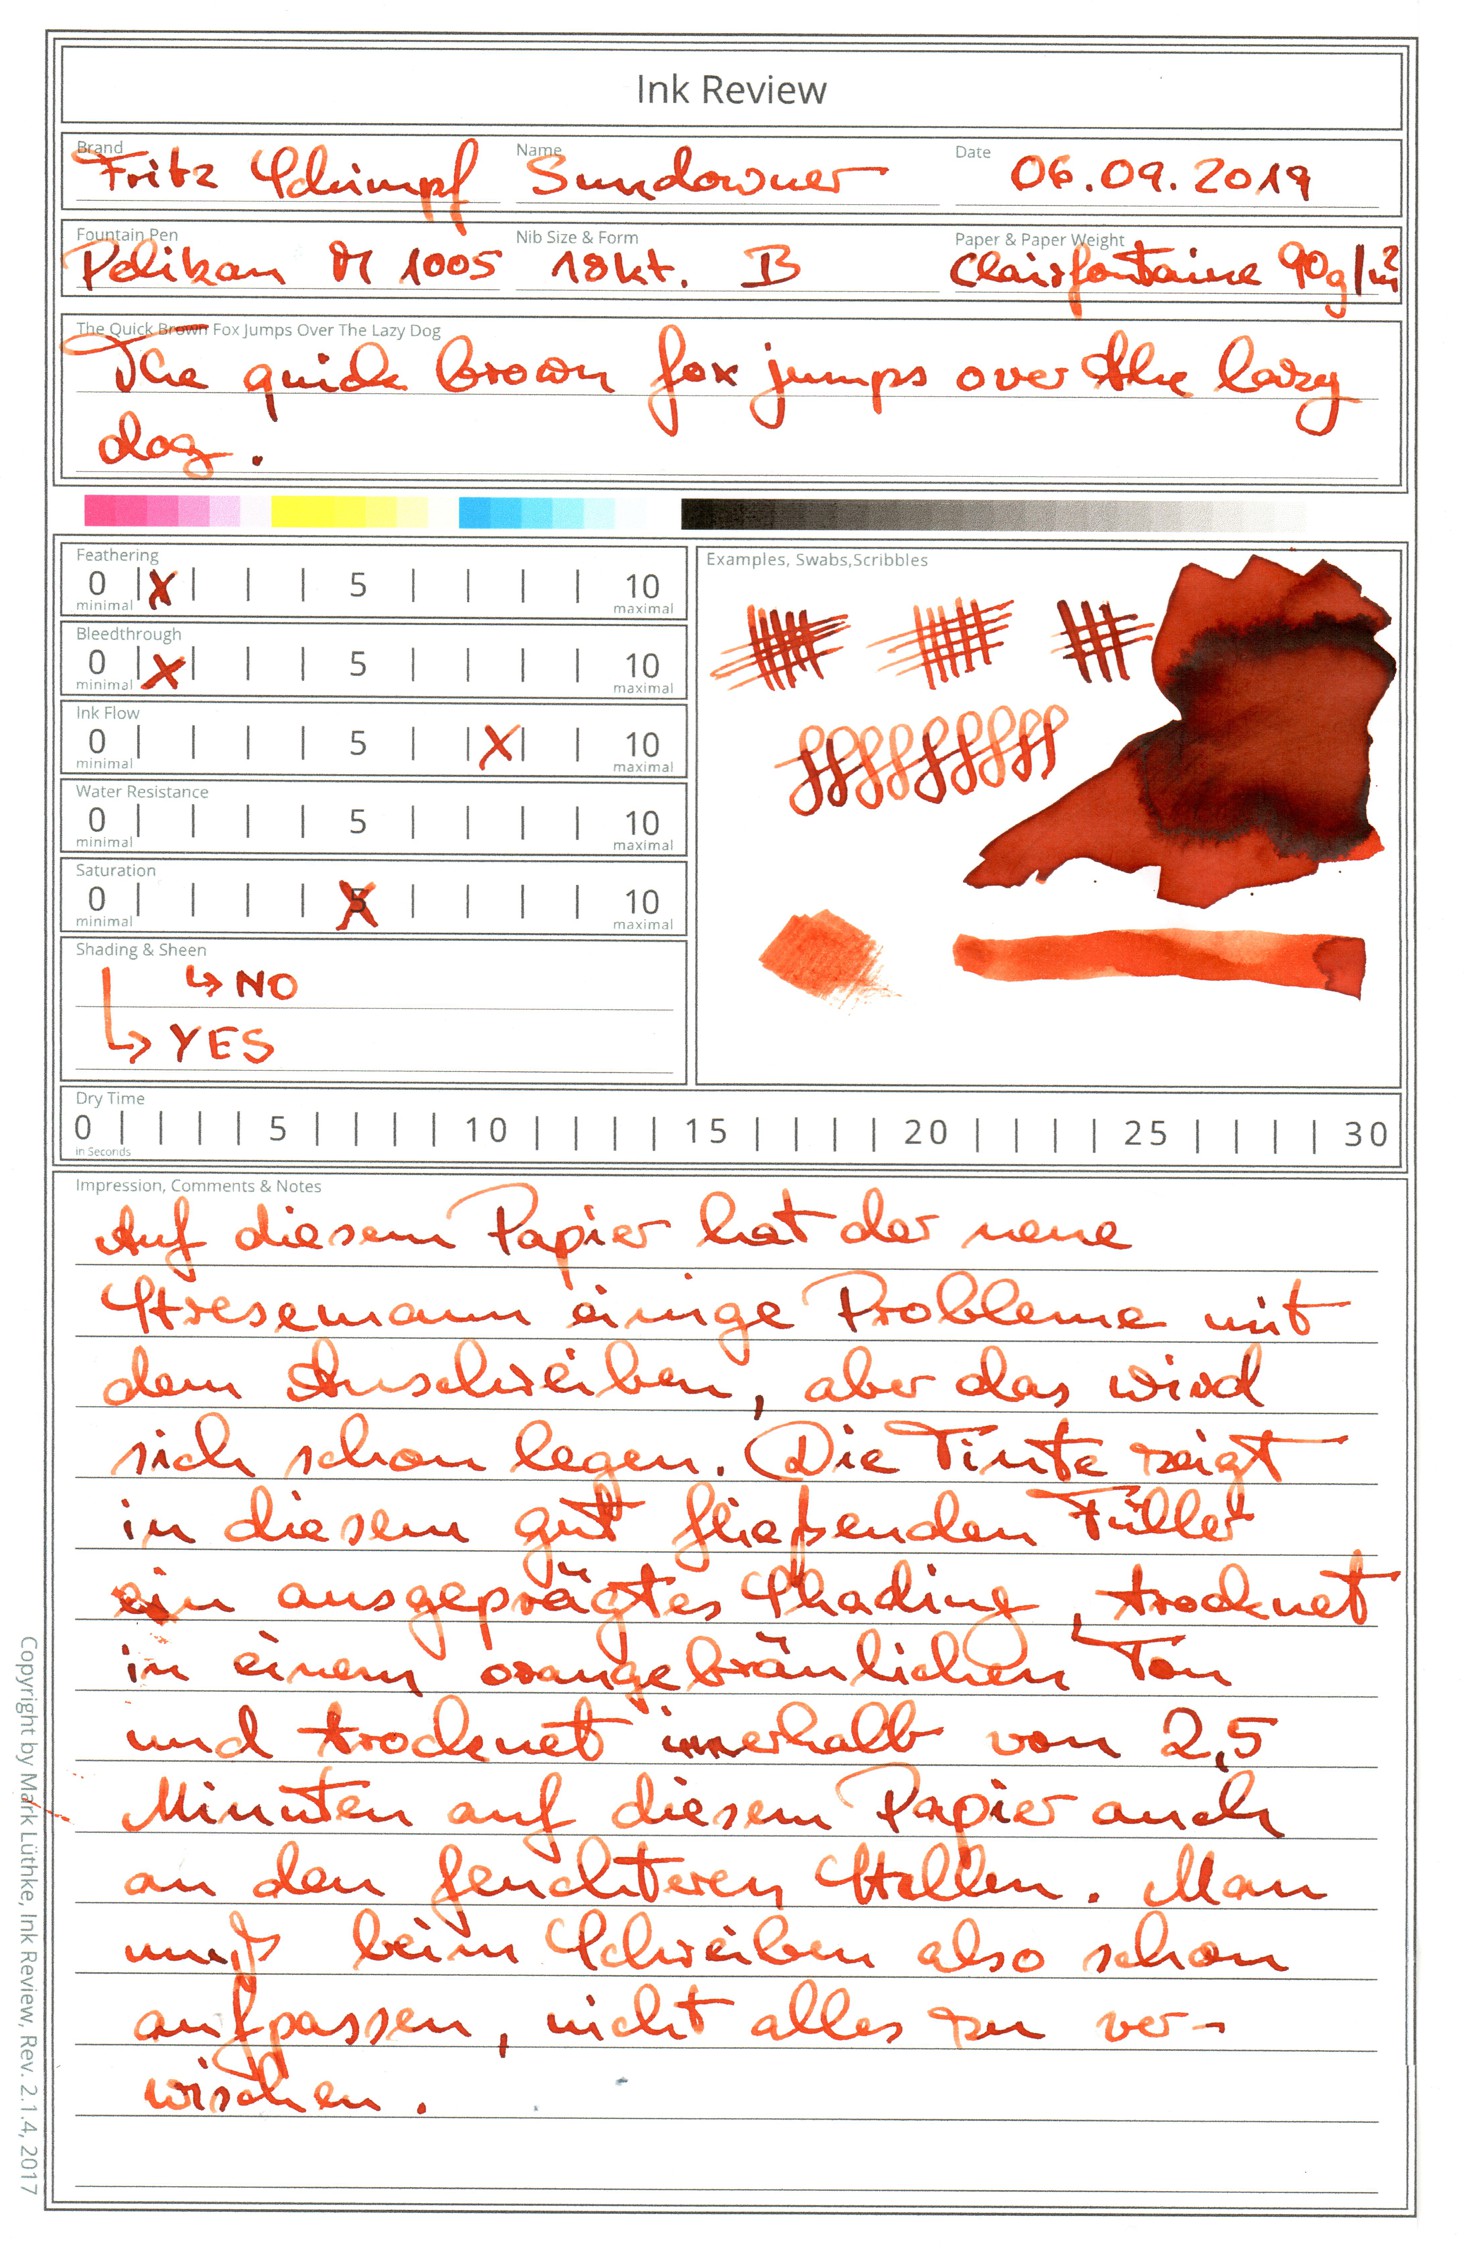 Ink Review
Brand
Fritz Schimpf
Name
Sundowner
Date
06.09.2019
Fountain Pen
Pelikan M 1005
Nib Size & Form
18kt. B
Paper & Paper Weight
Clairfontaine 90g/m²
The Quick Brown Fox Jumps Over The Lazy Dog
The quick brown fox jumps over the lazy
dog.
Feathering
0 | X | | | 5 | | | | 10
minimal maximal
Bleedthrough
0 | X | | | 5 | | | | 10
minimal maximal
Ink Flow
0 | | | | 5 | | X | | 10
minimal maximal
Water Resistance
0 | | | | 5 | | | | 10
minimal maximal
Saturation
0 | | | | 5 X | | | | 10
minimal maximal
Shading & Sheen
↳ NO
↳ YES
Examples, Swabs,Scribbles
Dry Time
0 | | | | 5 | | | | 10 | | | | 15 | | | | 20 | | | | 25 | | | | 30
in Seconds
Impression, Comments & Notes
Auf diesem Papier hat der neue
Stresemann einige Probleme mit
dem Anschreiben, aber das wird
sich schon legen. Die Tinte zeigt
in diesem gut fließenden Füller
ein ausgeprägtes Shading, trocknet
in einem orangebräunlichen Ton
und trocknet innerhalb von 2,5
Minuten auf diesem Papier auch
an den feuchteren Stellen. Man
muß beim Schreiben also schon
aufpassen, nicht alles zu ver-
wischen.
Copyright by Mark Lüthke, Ink Review, Rev. 2.1.4, 2017